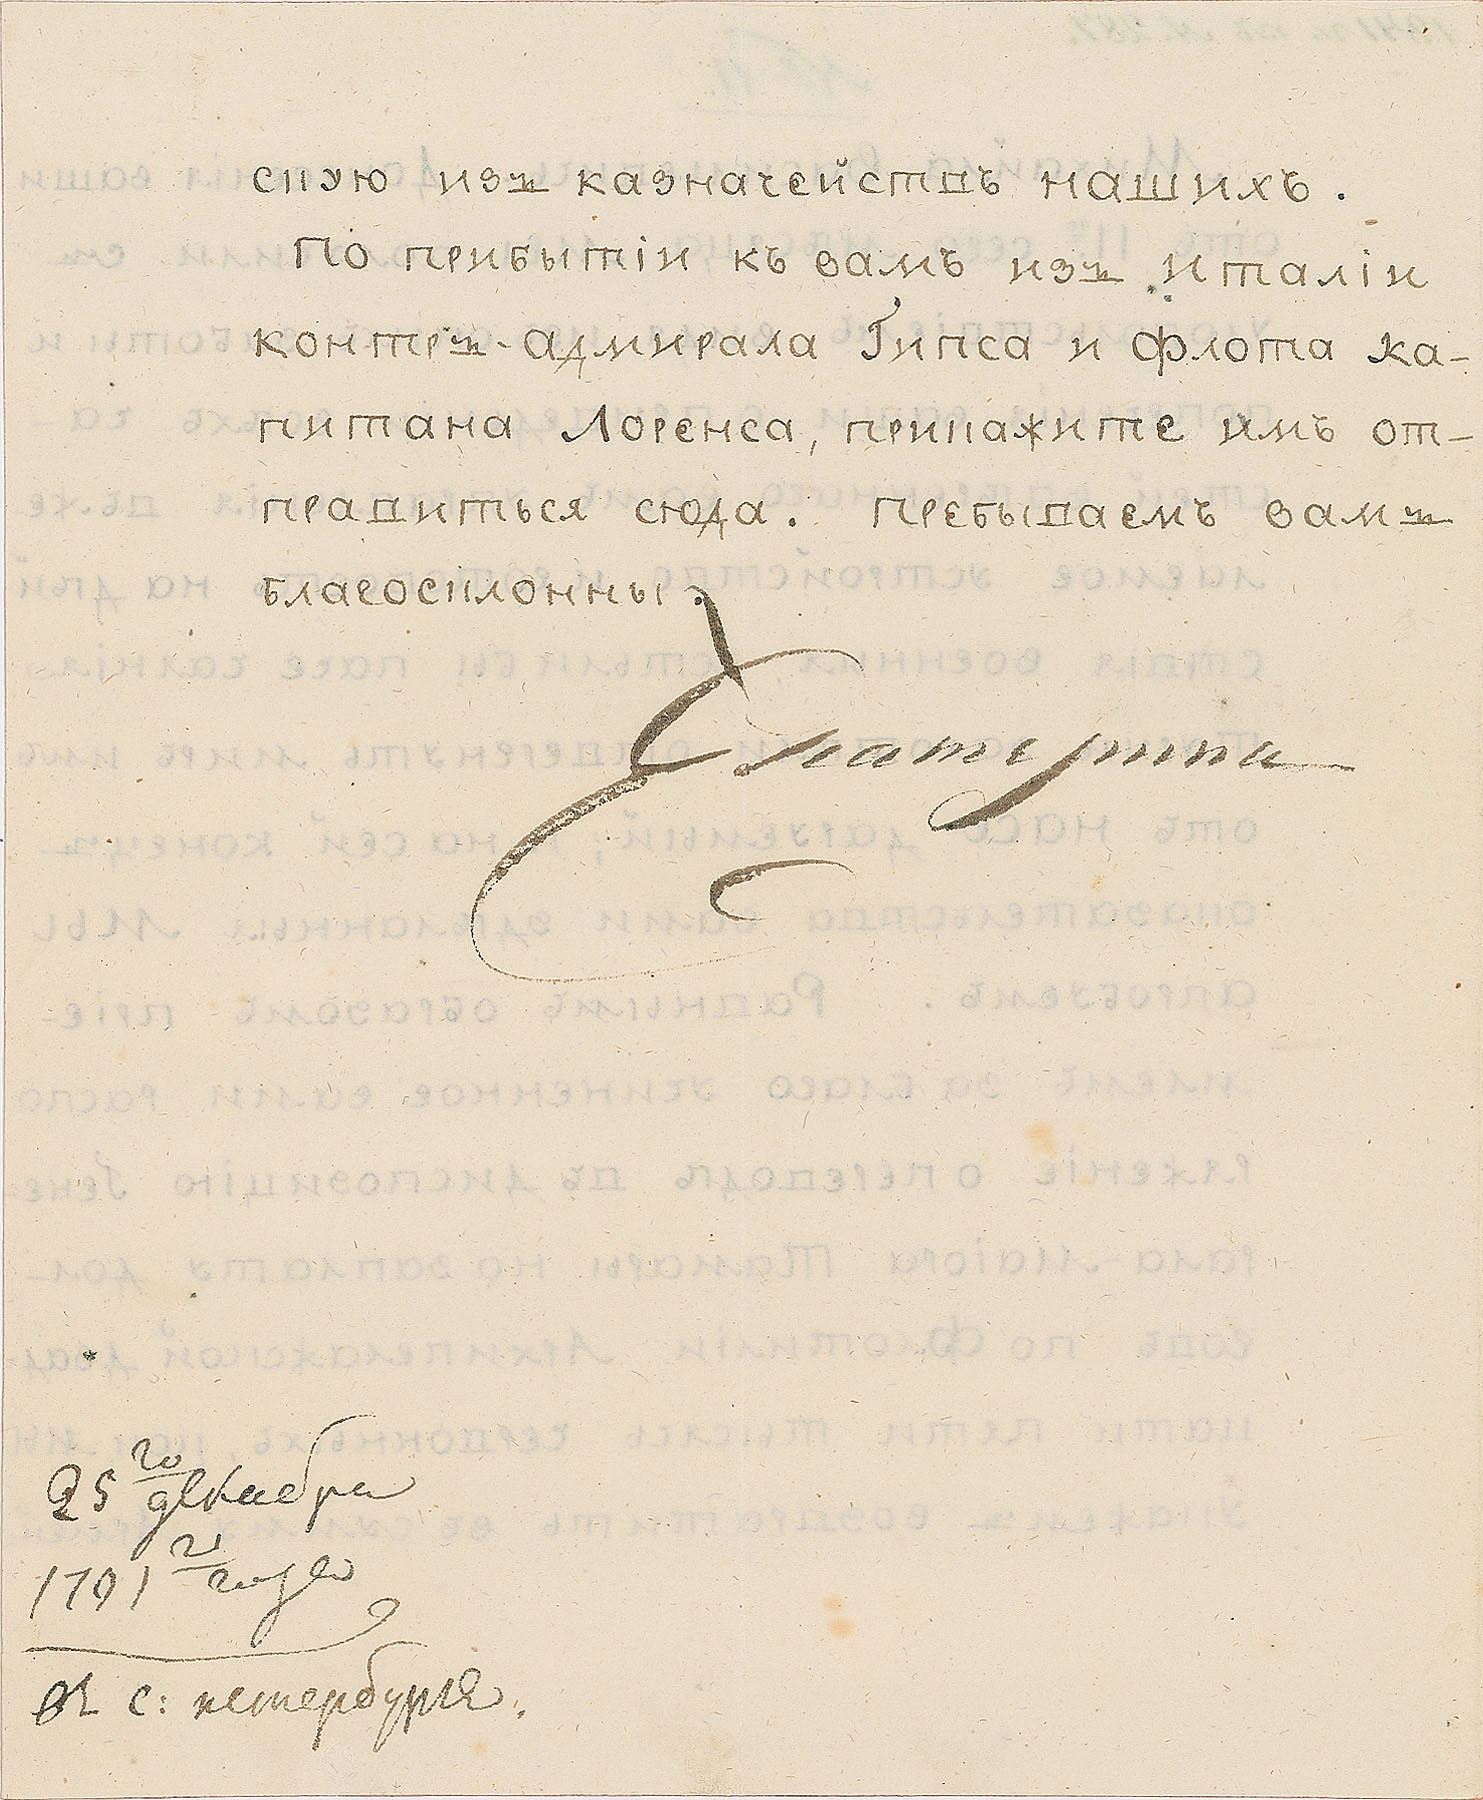 скую изъ казначействъ нашихъ.
По прибытіи къ вамъ изъ Италіи
контръ-адмирала Гипса и флота ка-
питана Лоренса, прикажите имъ от-
правиться сюда. Пребываемъ вамъ
благосклонны.
Екатерина
25го декабря
1791го года
въ С: петербургѣ.